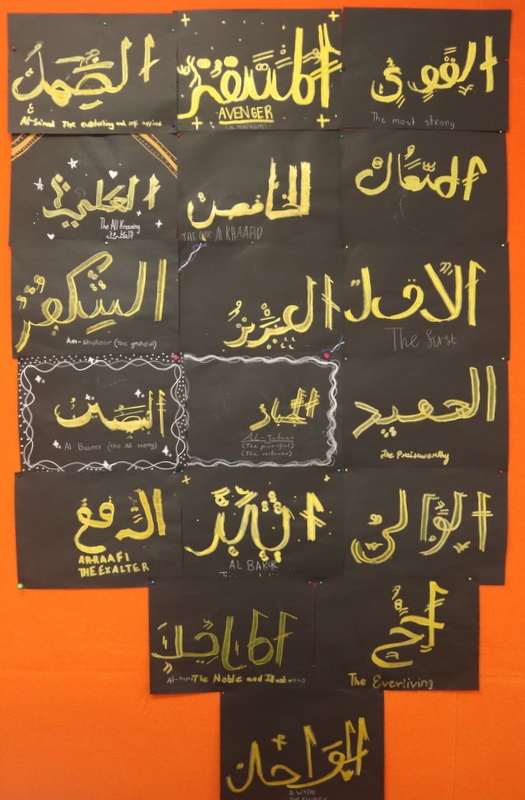 الصمد
Al-Samad The everlasting and
المنتقم
AVENGER
القوي
The most strong
العلي
The All Knowing
الخافض
AL KHAAFID
المتعال
الشكور
ash-Shakoor (the grateful)
العزيز
الأول
The first
البصير
Al Baseer (the All seeing)
الجبار
Al-Jabaar
(The powerful)
الحميد
The Praiseworthy
الرافع
AR-RAAFI
THE EXALTER
الوالي
الماجد
The Noble and
الحي
The Everliving
الواحد